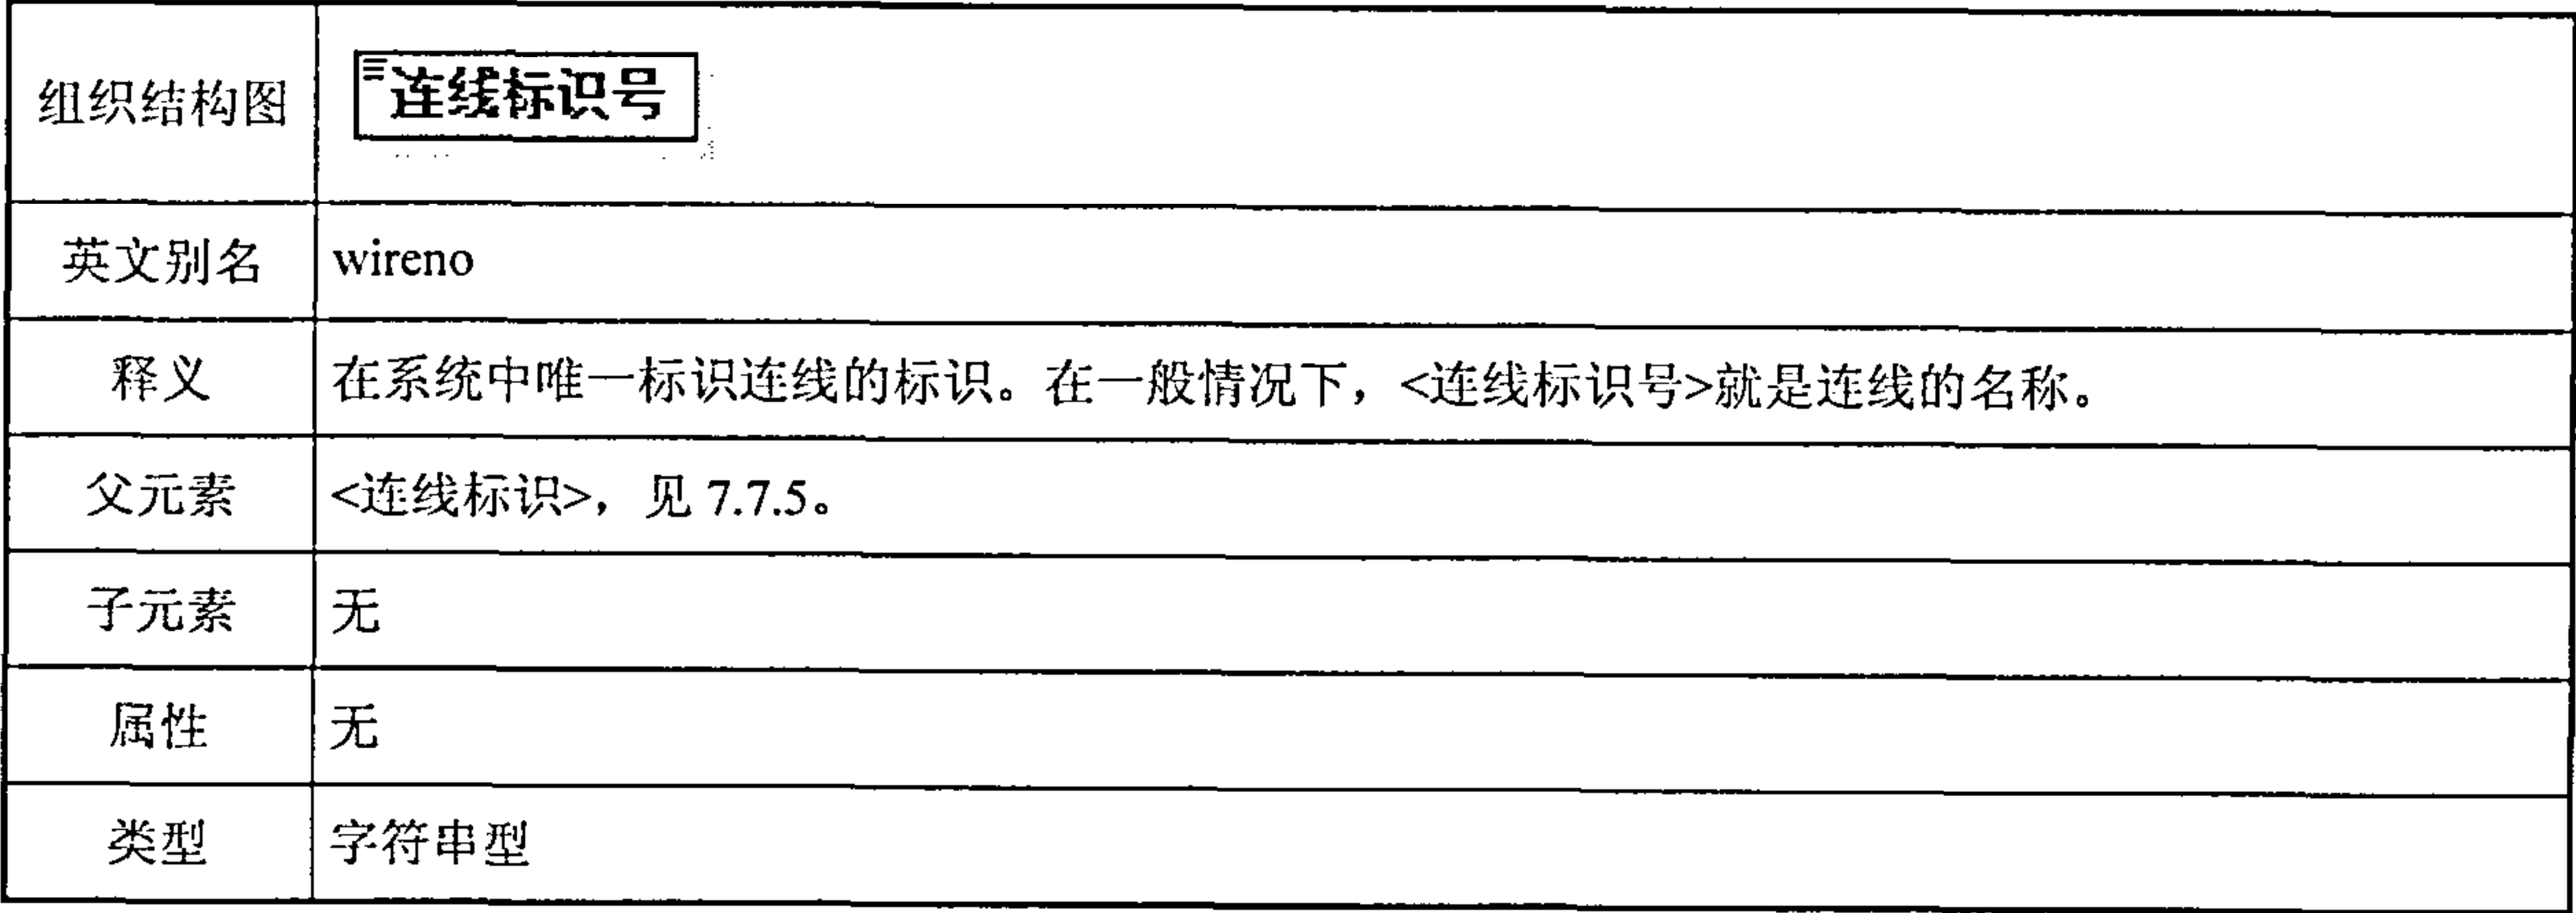 组织结构图 连线标识号
英文别名 wireno
释义 在系统中唯一标识连线的标识。在一般情况下，<连线标识号>就是连线的名称。
父元素 <连线标识>，见 7.7.5。
子元素 无
属性 无
类型 字符串型